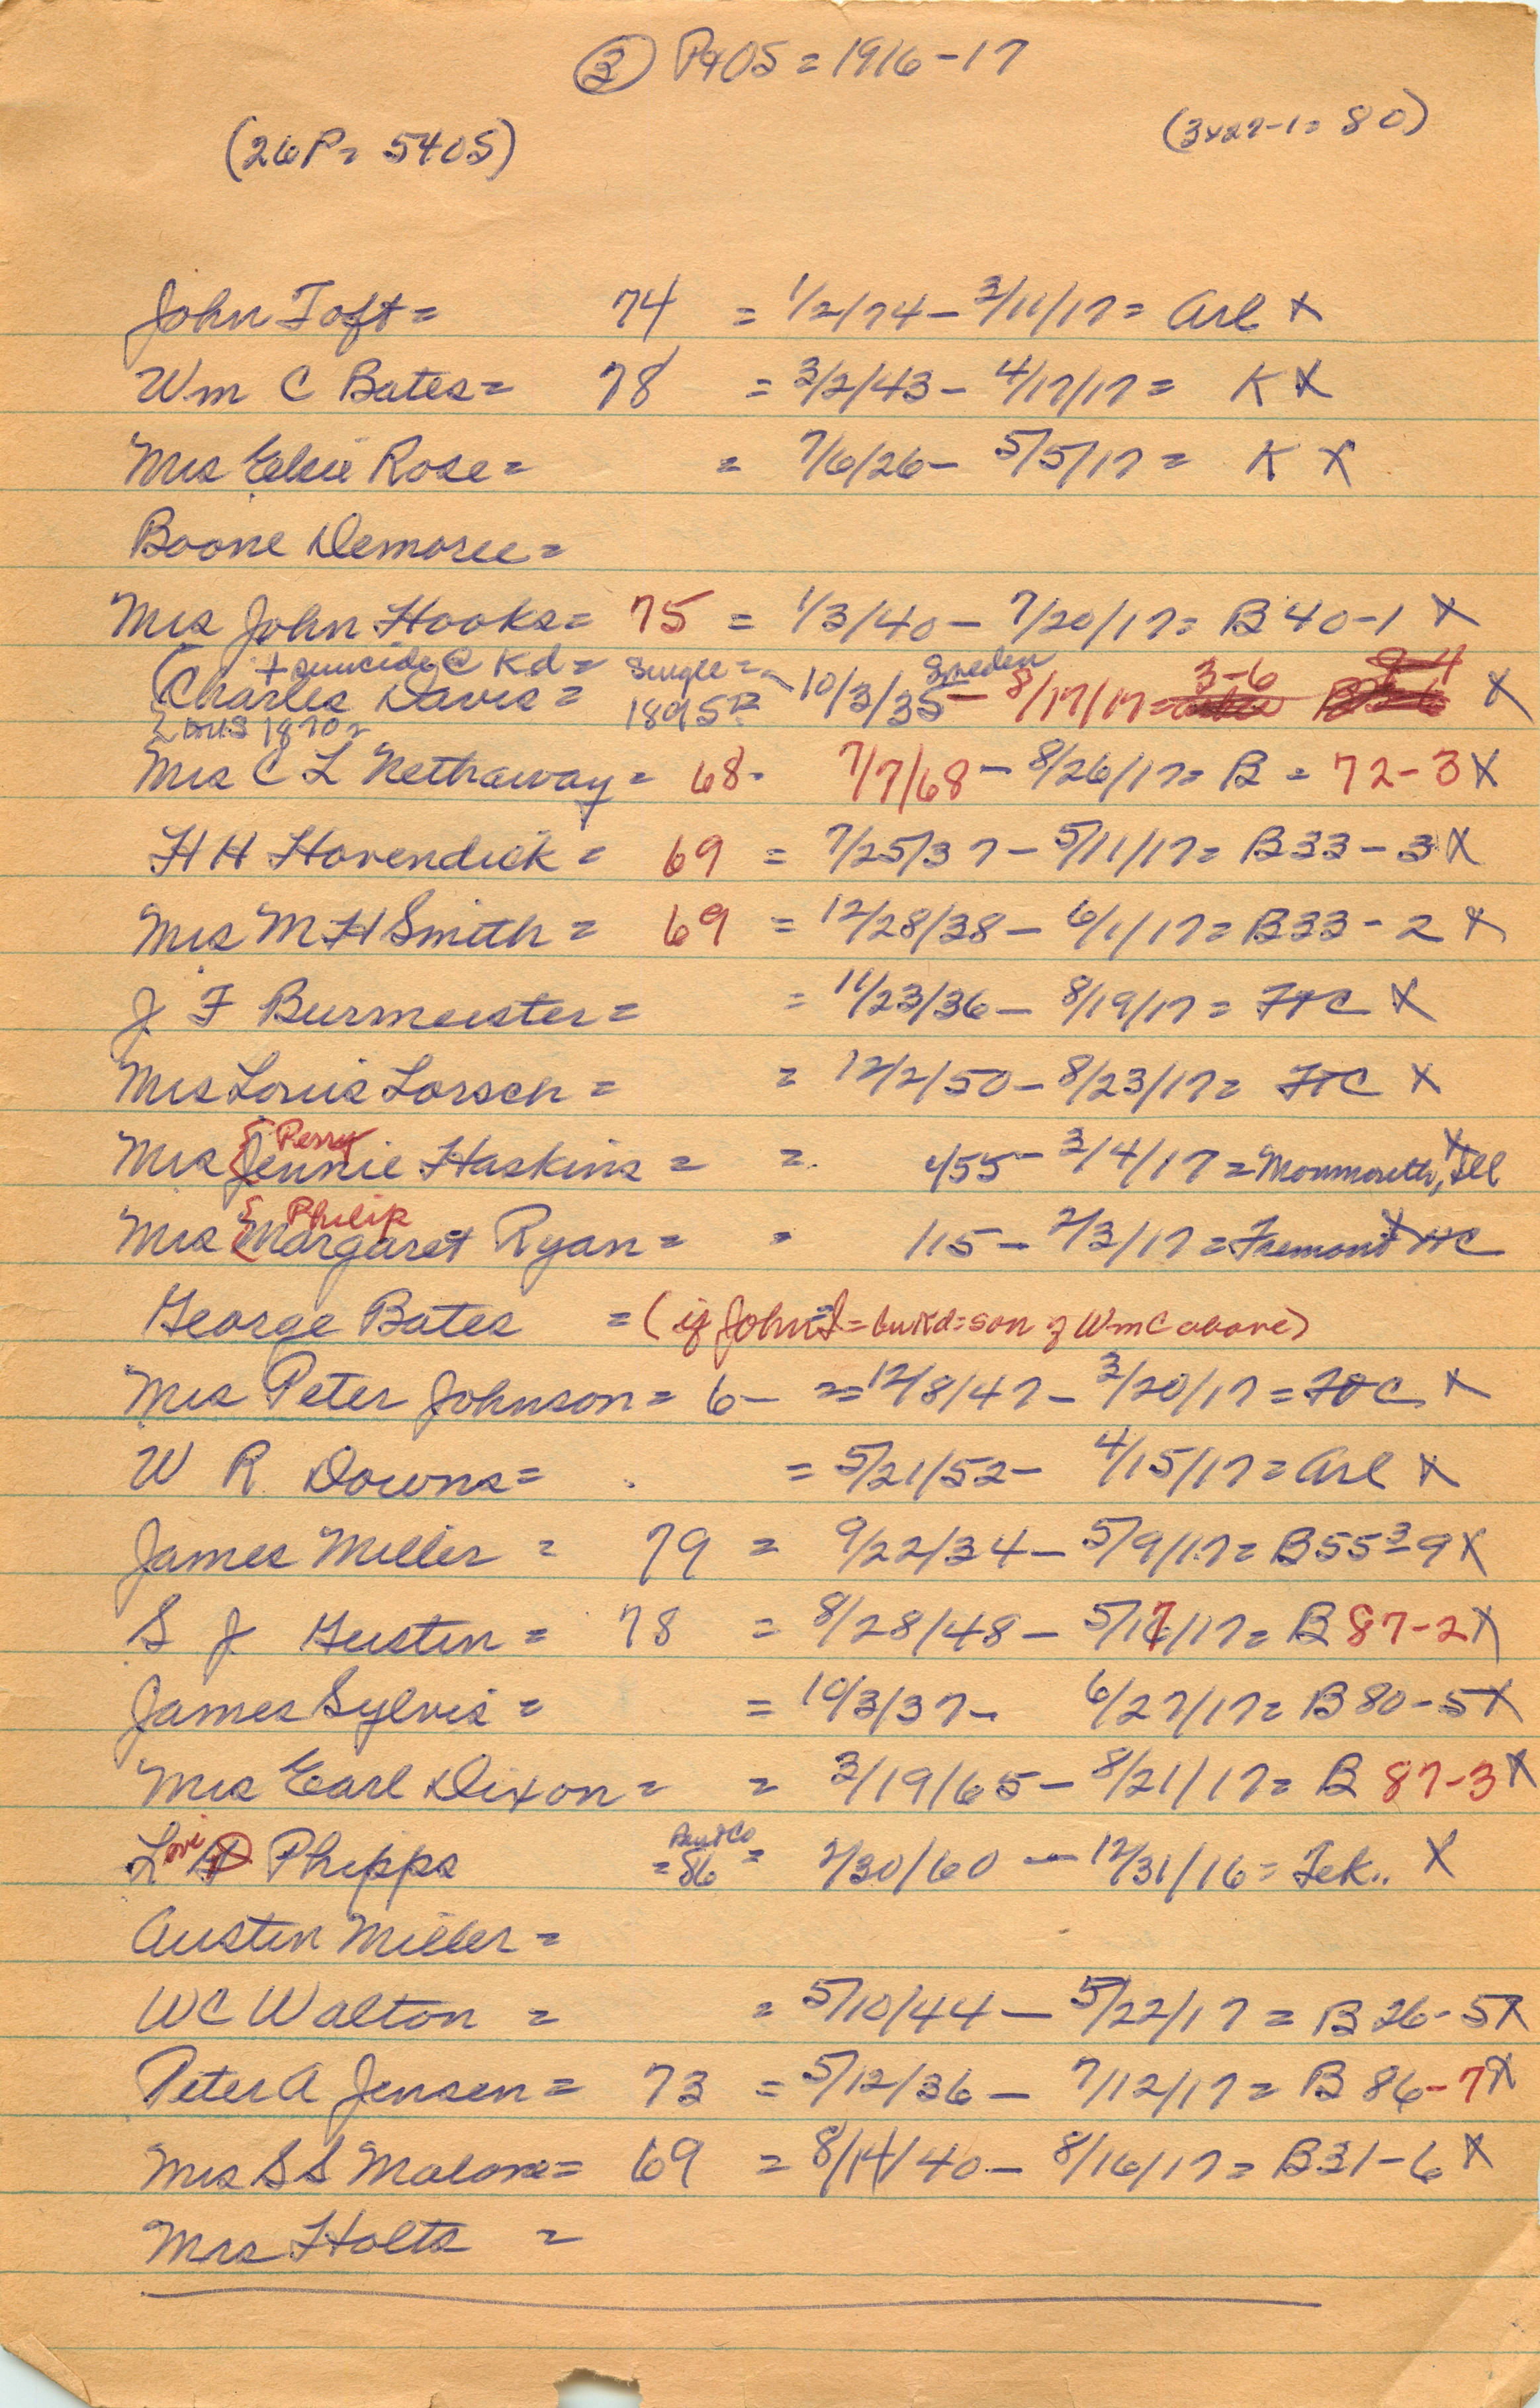 ③ P+OS = 1916-17
(26P = 54OS)
(3x27-1 = 80)
John Toft = 74 = 1/2/74 - 3/11/17 = Arl X
Wm C Bates = 78 = 3/2/43 - 4/17/17 = K X
Mrs Elsie Rose = = 7/6/26 - 5/5/17 = K X
Boone Demaree =
Mrs John Hooks = 75 = 1/3/40 - 7/20/17 = B 40-1 X
+ suicide @ Kd = Single = Sweden 3-6 8-4
Charles Davis = 1895 10/3/35 - 8/17/17 = X
{ 1870 =
Mrs C L Nethaway = 68 - 7/7/68 - 8/26/17 = B = 72-3 X
H H Hovendick = 69 = 7/25/37 - 5/11/17 = B33-3 X
Mrs M H Smith = 69 = 12/28/38 - 6/1/17 = B33-2 X
J F Burmeister = = 11/23/36 - 8/19/17 = FtC X
Mrs Louis Lorsch = = 12/2/50 - 8/23/17 = FtC X
{ Perry
Mrs { Jennie Haskins = = 1/55 - 3/4/17 = Monmouth, Ill X
{ Philip
Mrs { Margaret Ryan = = 1/15 - 2/3/17 = Fremont X
George Bates = (if John = bu Kd = son of Wm C above)
Mrs Peter Johnson = 6- == 12/8/47 - 3/20/17 = FtC X
W R Downs = = 5/21/52 - 4/15/17 = Arl X
James Miller = 79 = 9/22/34 - 5/9/17 = B55-9 X
S J Gustin = 78 = 8/28/48 - 5/17/17 = B 87-2 X
James Sylvis = = 10/3/37 - 6/27/17 = B 80-5 X
Mrs Earl Dixon = = 3/19/65 - 8/21/17 = B 87-3 X
Lovi Phipps = 86 = 2/30/60 - 12/31/16 = Tek.. X
Austin Miller =
WC Walton = = 5/10/44 - 5/22/17 = B 26-5 X
Peter A Jensen = 73 = 5/12/36 - 7/12/17 = B 86-7 X
Mrs S S Malone = 69 = 8/14/40 - 8/16/17 = B31-6 X
Mrs Holts =